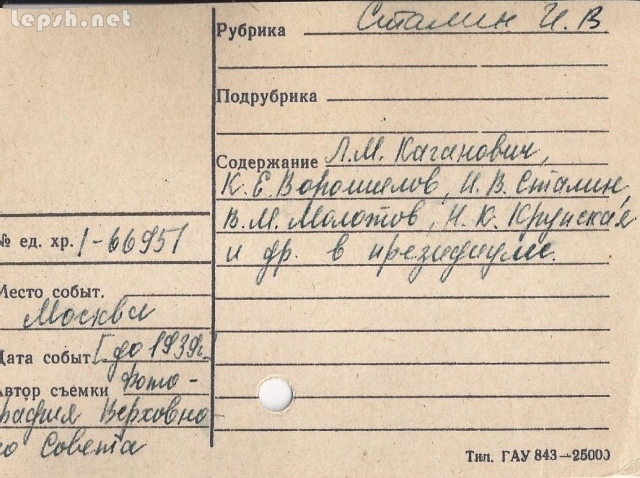 lepsh.net
Рубрика Сталин И.В
Подрубрика
Содержание Л.М. Каганович,
К.Е.Ворошилов, И.В.Сталин
В.М.Молотов, Н.К.Крупская
и др. в президиуме.
№ ед. хр. 1-66951
Место событ.
Москва
Дата событ. [до 1939г.]
Автор съемки Фото-
графия Верховно-
го Совета
Тип. ГАУ 843—25000